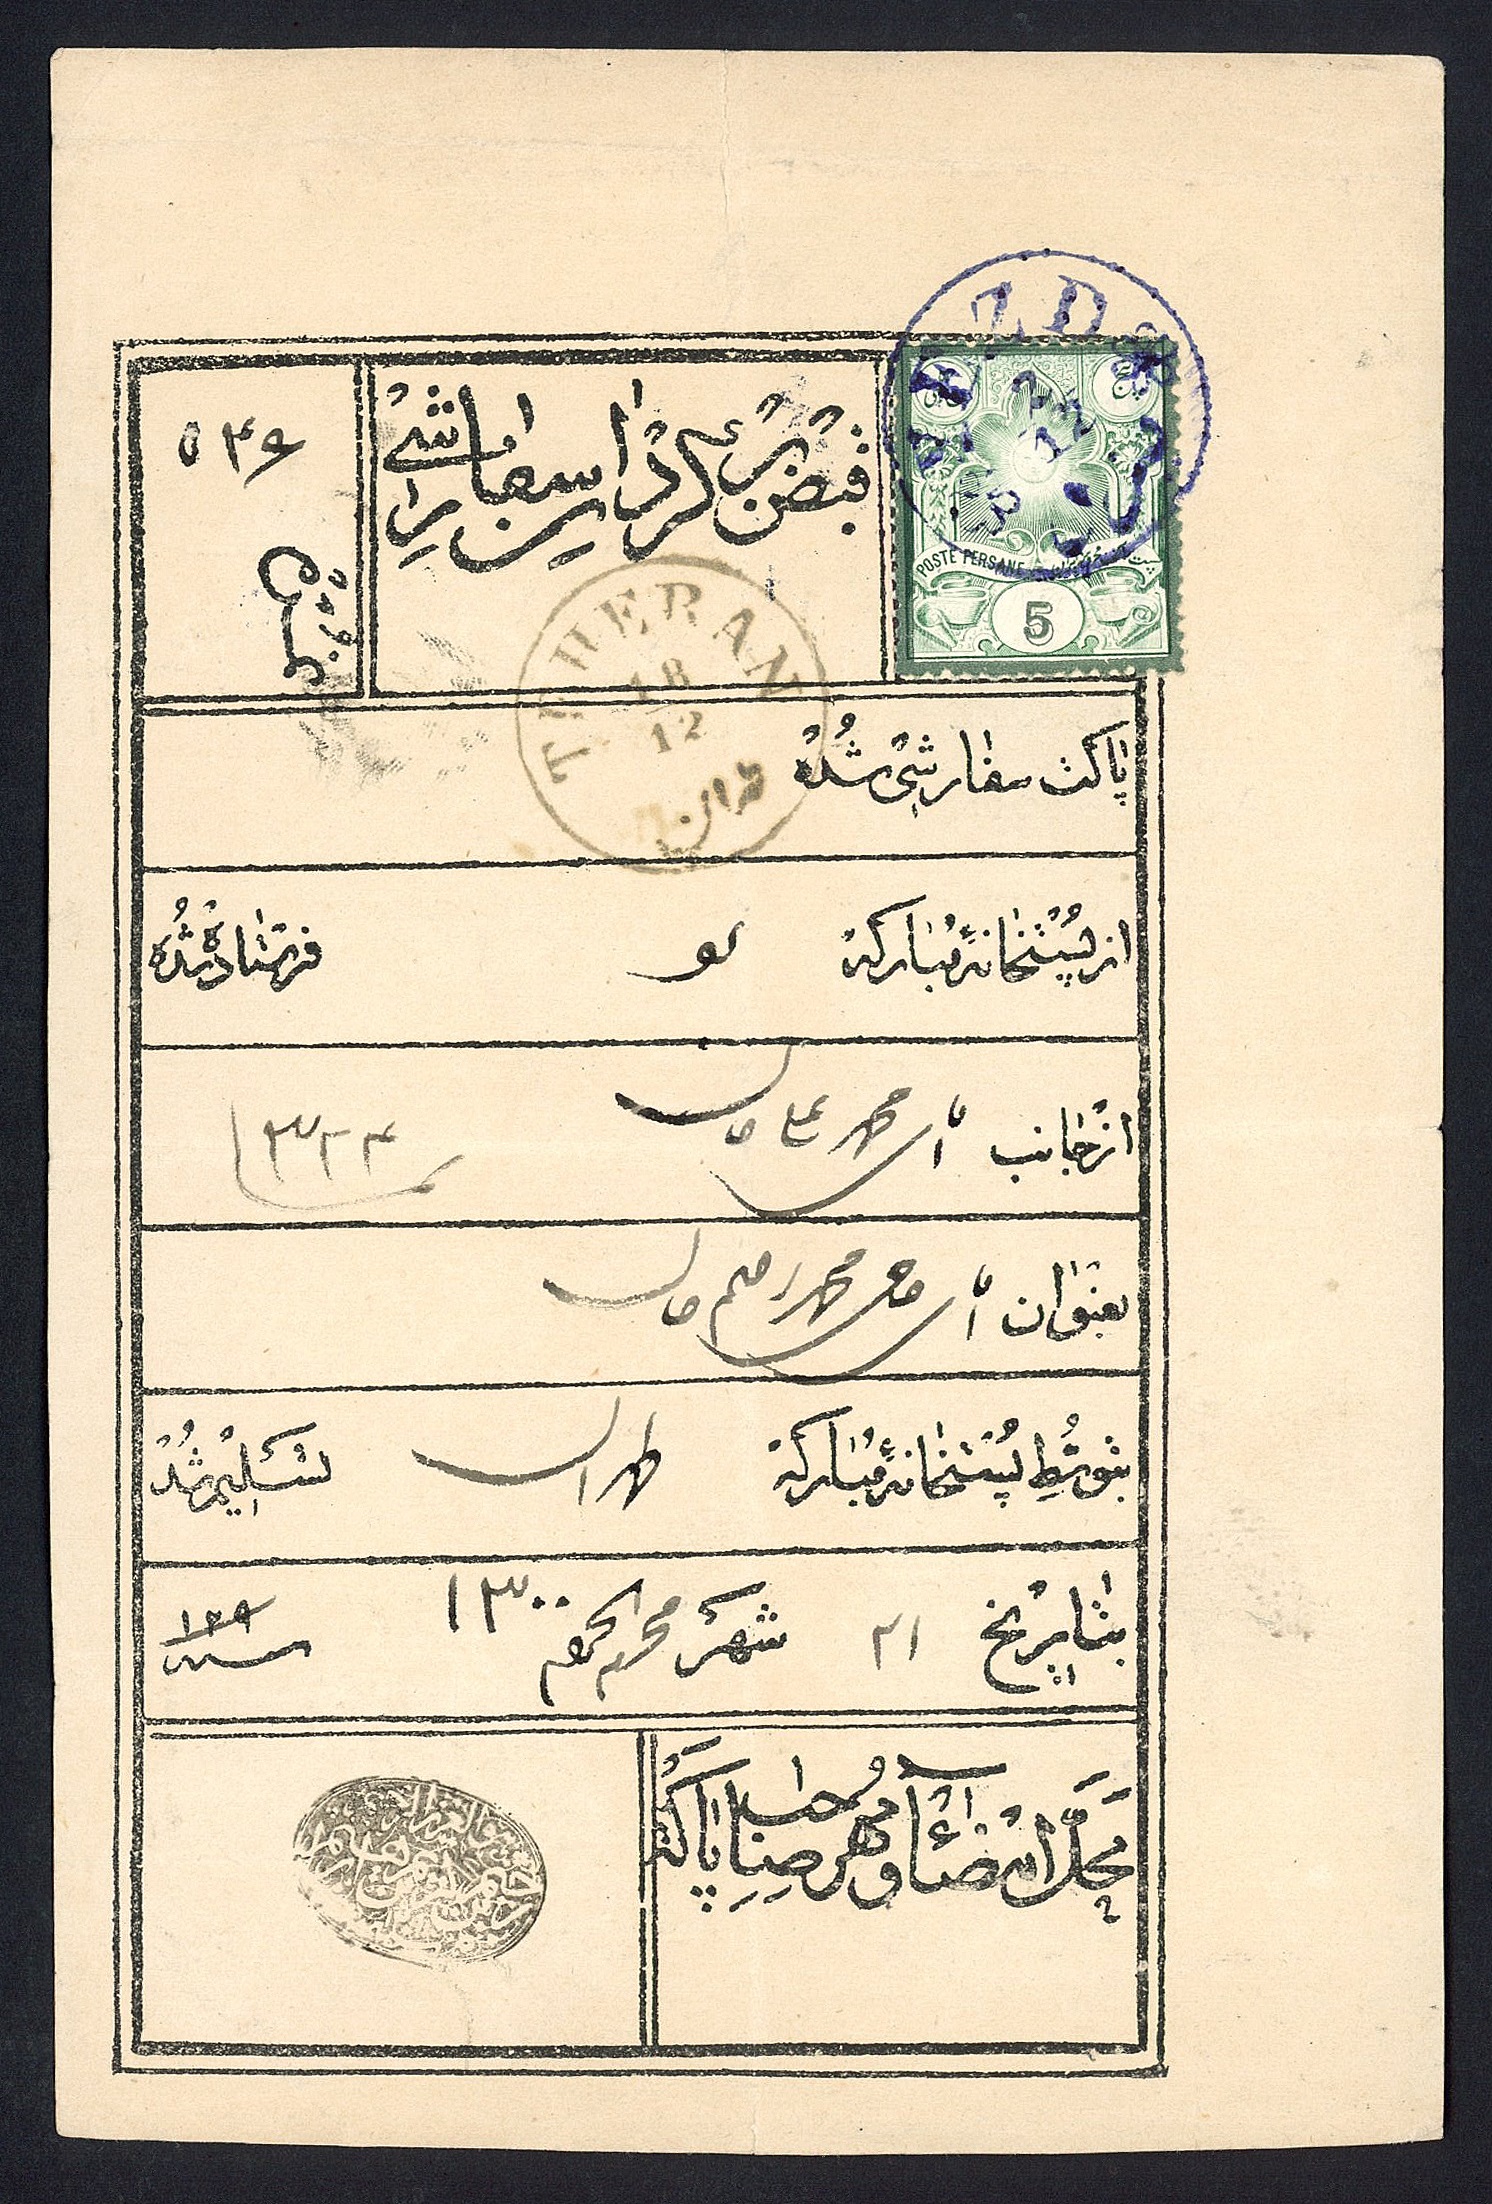 قبض برگردان سفارشی
۵۴۶
نمرهٔ
YEZD
یزد
POSTE PERSANE
5
TEHERAN
18
12
طهران
پاکت سفارشی شده
از پستخانهٔ مبارکهٔ
فرستاده شده
از جانب آقا محمد علی
۳۲۴
بعنوان آقا محمد رحیم
بتوسط پستخانهٔ مبارکهٔ طهران تسلیم شد
بتاریخ ۲۱ شهر محرم الحرام ۱۳۰۰
۱۲۹
سنه
محل امضاء و مهر صاحب پاکت